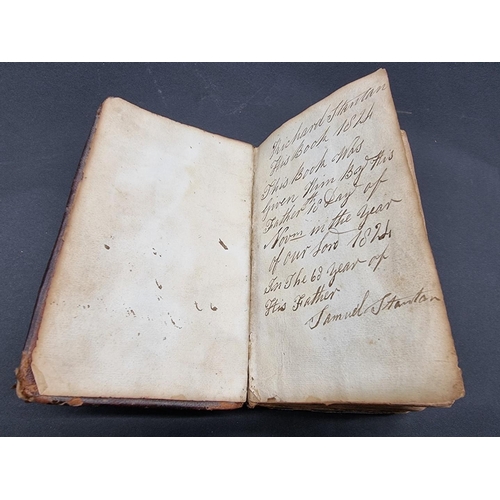 Richard Stantan
His Book 1824
This Book Was
Given Him By His
Father 18th Day of
Novm in the Year
of our Lord 1824
In The 68 Year of
His Father
Samuel Stantan